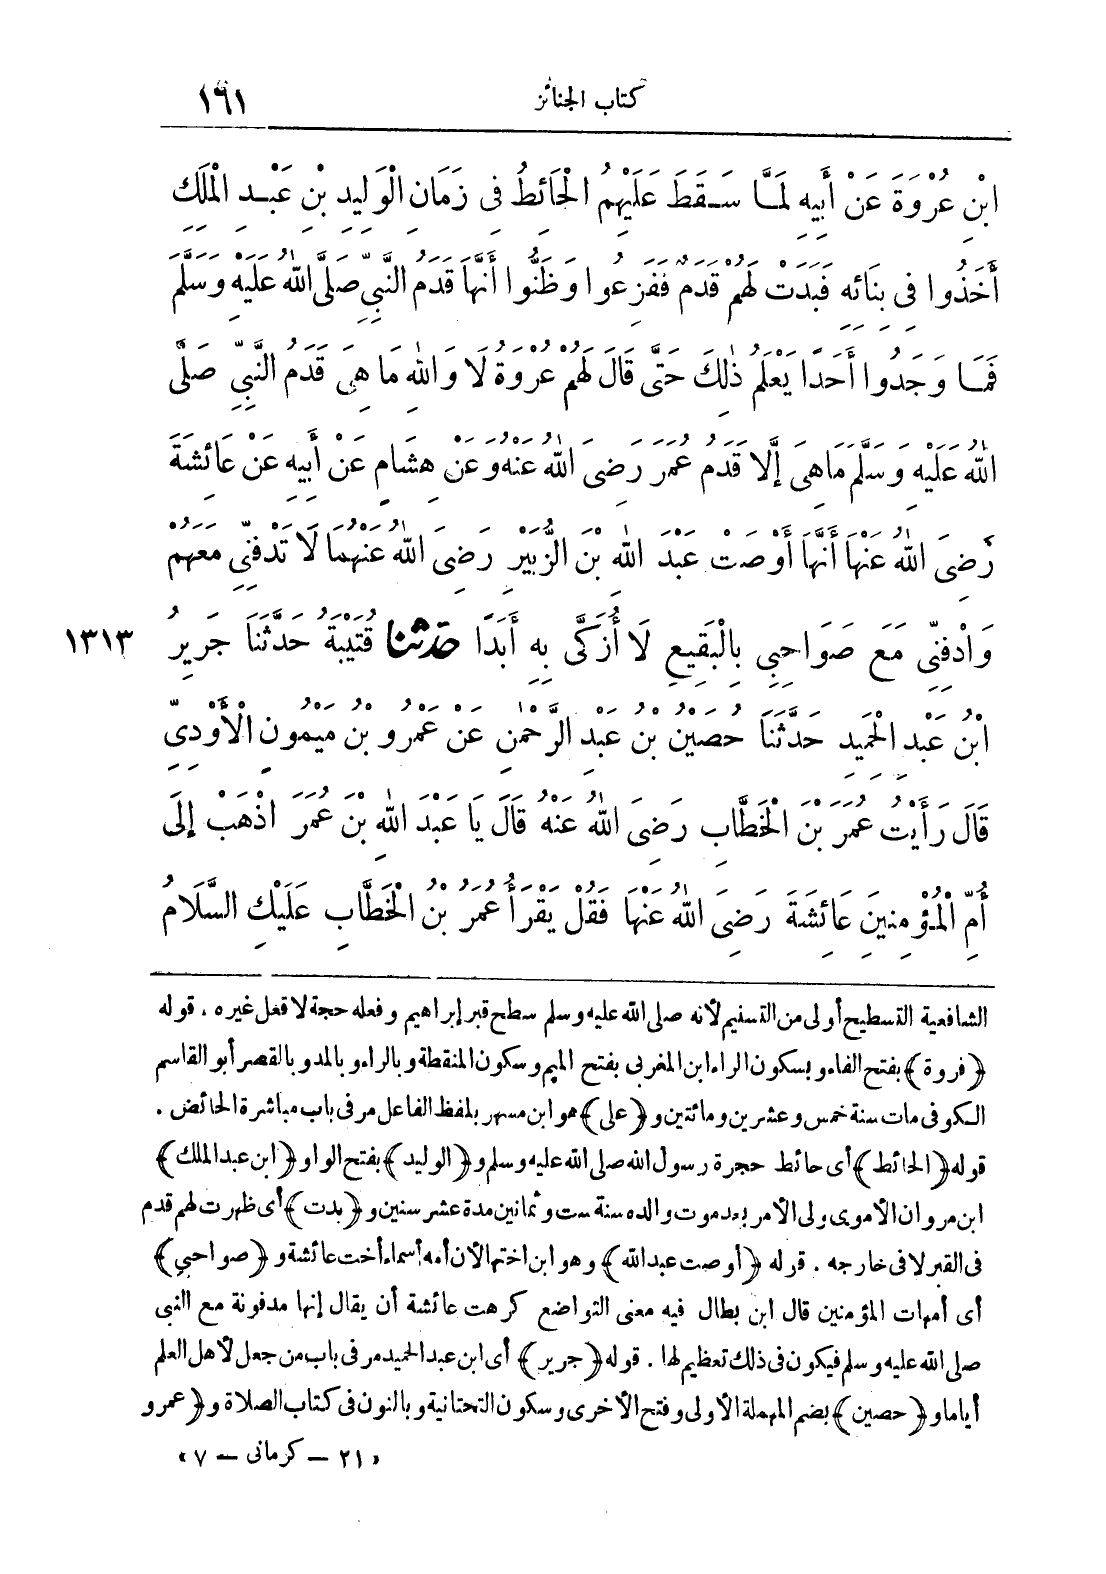 كتاب الجنائز ١٦١
ابْنِ عُرْوَةَ عَنْ أَبِيهِ لَمَّا سَقَطَ عَلَيْهِمُ الْحَائِطُ فِي زَمَانِ الْوَلِيدِ بْنِ عَبْدِ الْمَلِكِ
أَخَذُوا فِي بِنَائِهِ فَبَدَتْ لَهُمْ قَدَمٌ فَفَزِعُوا وَظَنُّوا أَنَّهَا قَدَمُ النَّبِيِّ صَلَّى اللهُ عَلَيْهِ وَسَلَّمَ
فَمَا وَجَدُوا أَحَدًا يَعْلَمُ ذٰلِكَ حَتَّى قَالَ لَهُمْ عُرْوَةُ لَا وَاللهِ مَا هِيَ قَدَمُ النَّبِيِّ صَلَّى
اللهُ عَلَيْهِ وَسَلَّمَ مَا هِيَ إِلَّا قَدَمُ عُمَرَ رَضِيَ اللهُ عَنْهُ وَعَنْ هِشَامٍ عَنْ أَبِيهِ عَنْ عَائِشَةَ
رَضِيَ اللهُ عَنْهَا أَنَّهَا أَوْصَتْ عَبْدَ اللهِ بْنَ الزُّبَيْرِ رَضِيَ اللهُ عَنْهُمَا لَا تَدْفِنِّي مَعَهُمْ
وَادْفِنِّي مَعَ صَوَاحِبِي بِالْبَقِيعِ لَا أُزَكَّى بِهِ أَبَدًا حَدَّثَنَا قُتَيْبَةُ حَدَّثَنَا جَرِيرُ ١٣١٣
ابْنُ عَبْدِ الْحَمِيدِ حَدَّثَنَا حُصَيْنُ بْنُ عَبْدِ الرَّحْمٰنِ عَنْ عَمْرِو بْنِ مَيْمُونٍ الْأَوْدِيِّ
قَالَ رَأَيْتُ عُمَرَ بْنَ الْخَطَّابِ رَضِيَ اللهُ عَنْهُ قَالَ يَا عَبْدَ اللهِ بْنَ عُمَرَ اذْهَبْ إِلَى
أُمِّ الْمُؤْمِنِينَ عَائِشَةَ رَضِيَ اللهُ عَنْهَا فَقُلْ يَقْرَأُ عُمَرُ بْنُ الْخَطَّابِ عَلَيْكِ السَّلَامُ
الشافعية التسطيح أولى من التسنيم لأنه صلى الله عليه وسلم سطح قبر إبراهيم وفعله حجة لا فعل غيره . قوله
﴿فروة﴾ بفتح الفاء وبسكون الراء ابن المغربى بفتح الميم وسكون المنقطة وبالراء وبالمد وبالقصر أبو القاسم
الكوفى مات سنة خمس وعشرين ومائتين و﴿على﴾ هو ابن مسهر بلفظ الفاعل مر فى باب مباشرة الحائض .
قوله ﴿الحائط﴾ أى حائط حجرة رسول الله صلى الله عليه وسلم و﴿الوليد﴾ بفتح الواو ﴿ابن عبد الملك﴾
ابن مروان الأموى ولى الأمر بعد موت والده سنة ست وثمانين مدة عشر سنين و﴿بدت﴾ أى ظهرت لهم قدم
فى القبر لا فى خارجه . قوله ﴿أوصت عبد الله﴾ وهو ابن اختها لأن أمه أسماء أخت عائشة و﴿صواحبي﴾
أى أمهات المؤمنين قال ابن بطال فيه معنى التواضع كرهت عائشة أن يقال إنها مدفونة مع النبى
صلى الله عليه وسلم فيكون فى ذلك تعظيم لها . قوله ﴿جرير﴾ أى ابن عبد الحميد مر فى باب من جعل لأهل العلم
أياما و﴿حصين﴾ بضم المهملة الأولى وفتح الأخرى وسكون التحتانية وبالنون فى كتاب الصلاة و﴿عمرو
«٢١ – كرمانى – ٧»